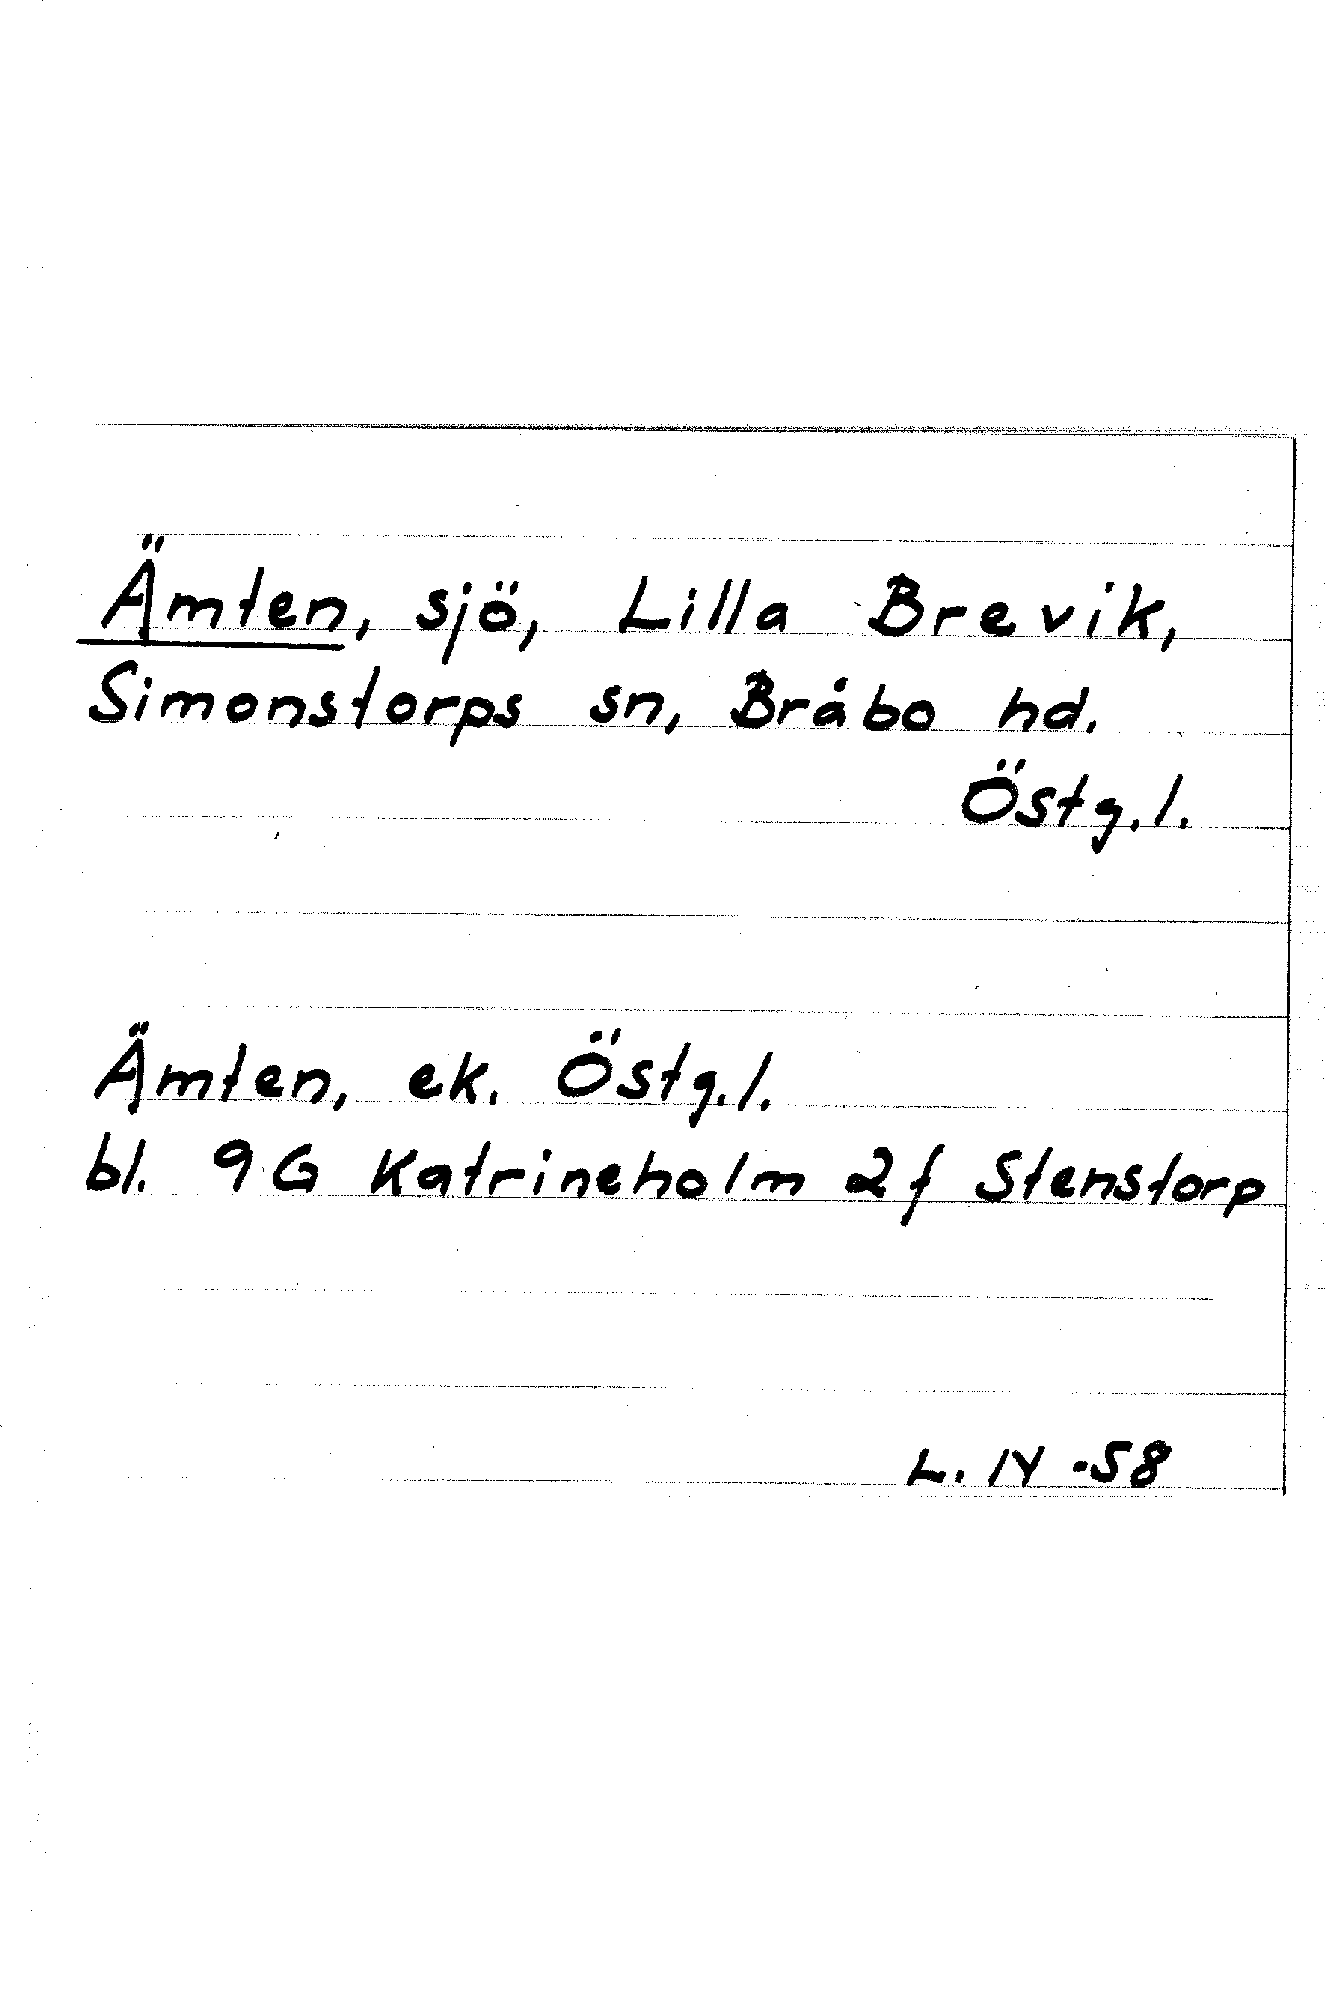 Ämten, sjö, Lilla Brevik,
Simonstorps sn, Bråbo hd.
Östg.l.
Ämten, ek. Östg.l.
bl. 9G Katrineholm 2f Stenstorp
L. IV -58